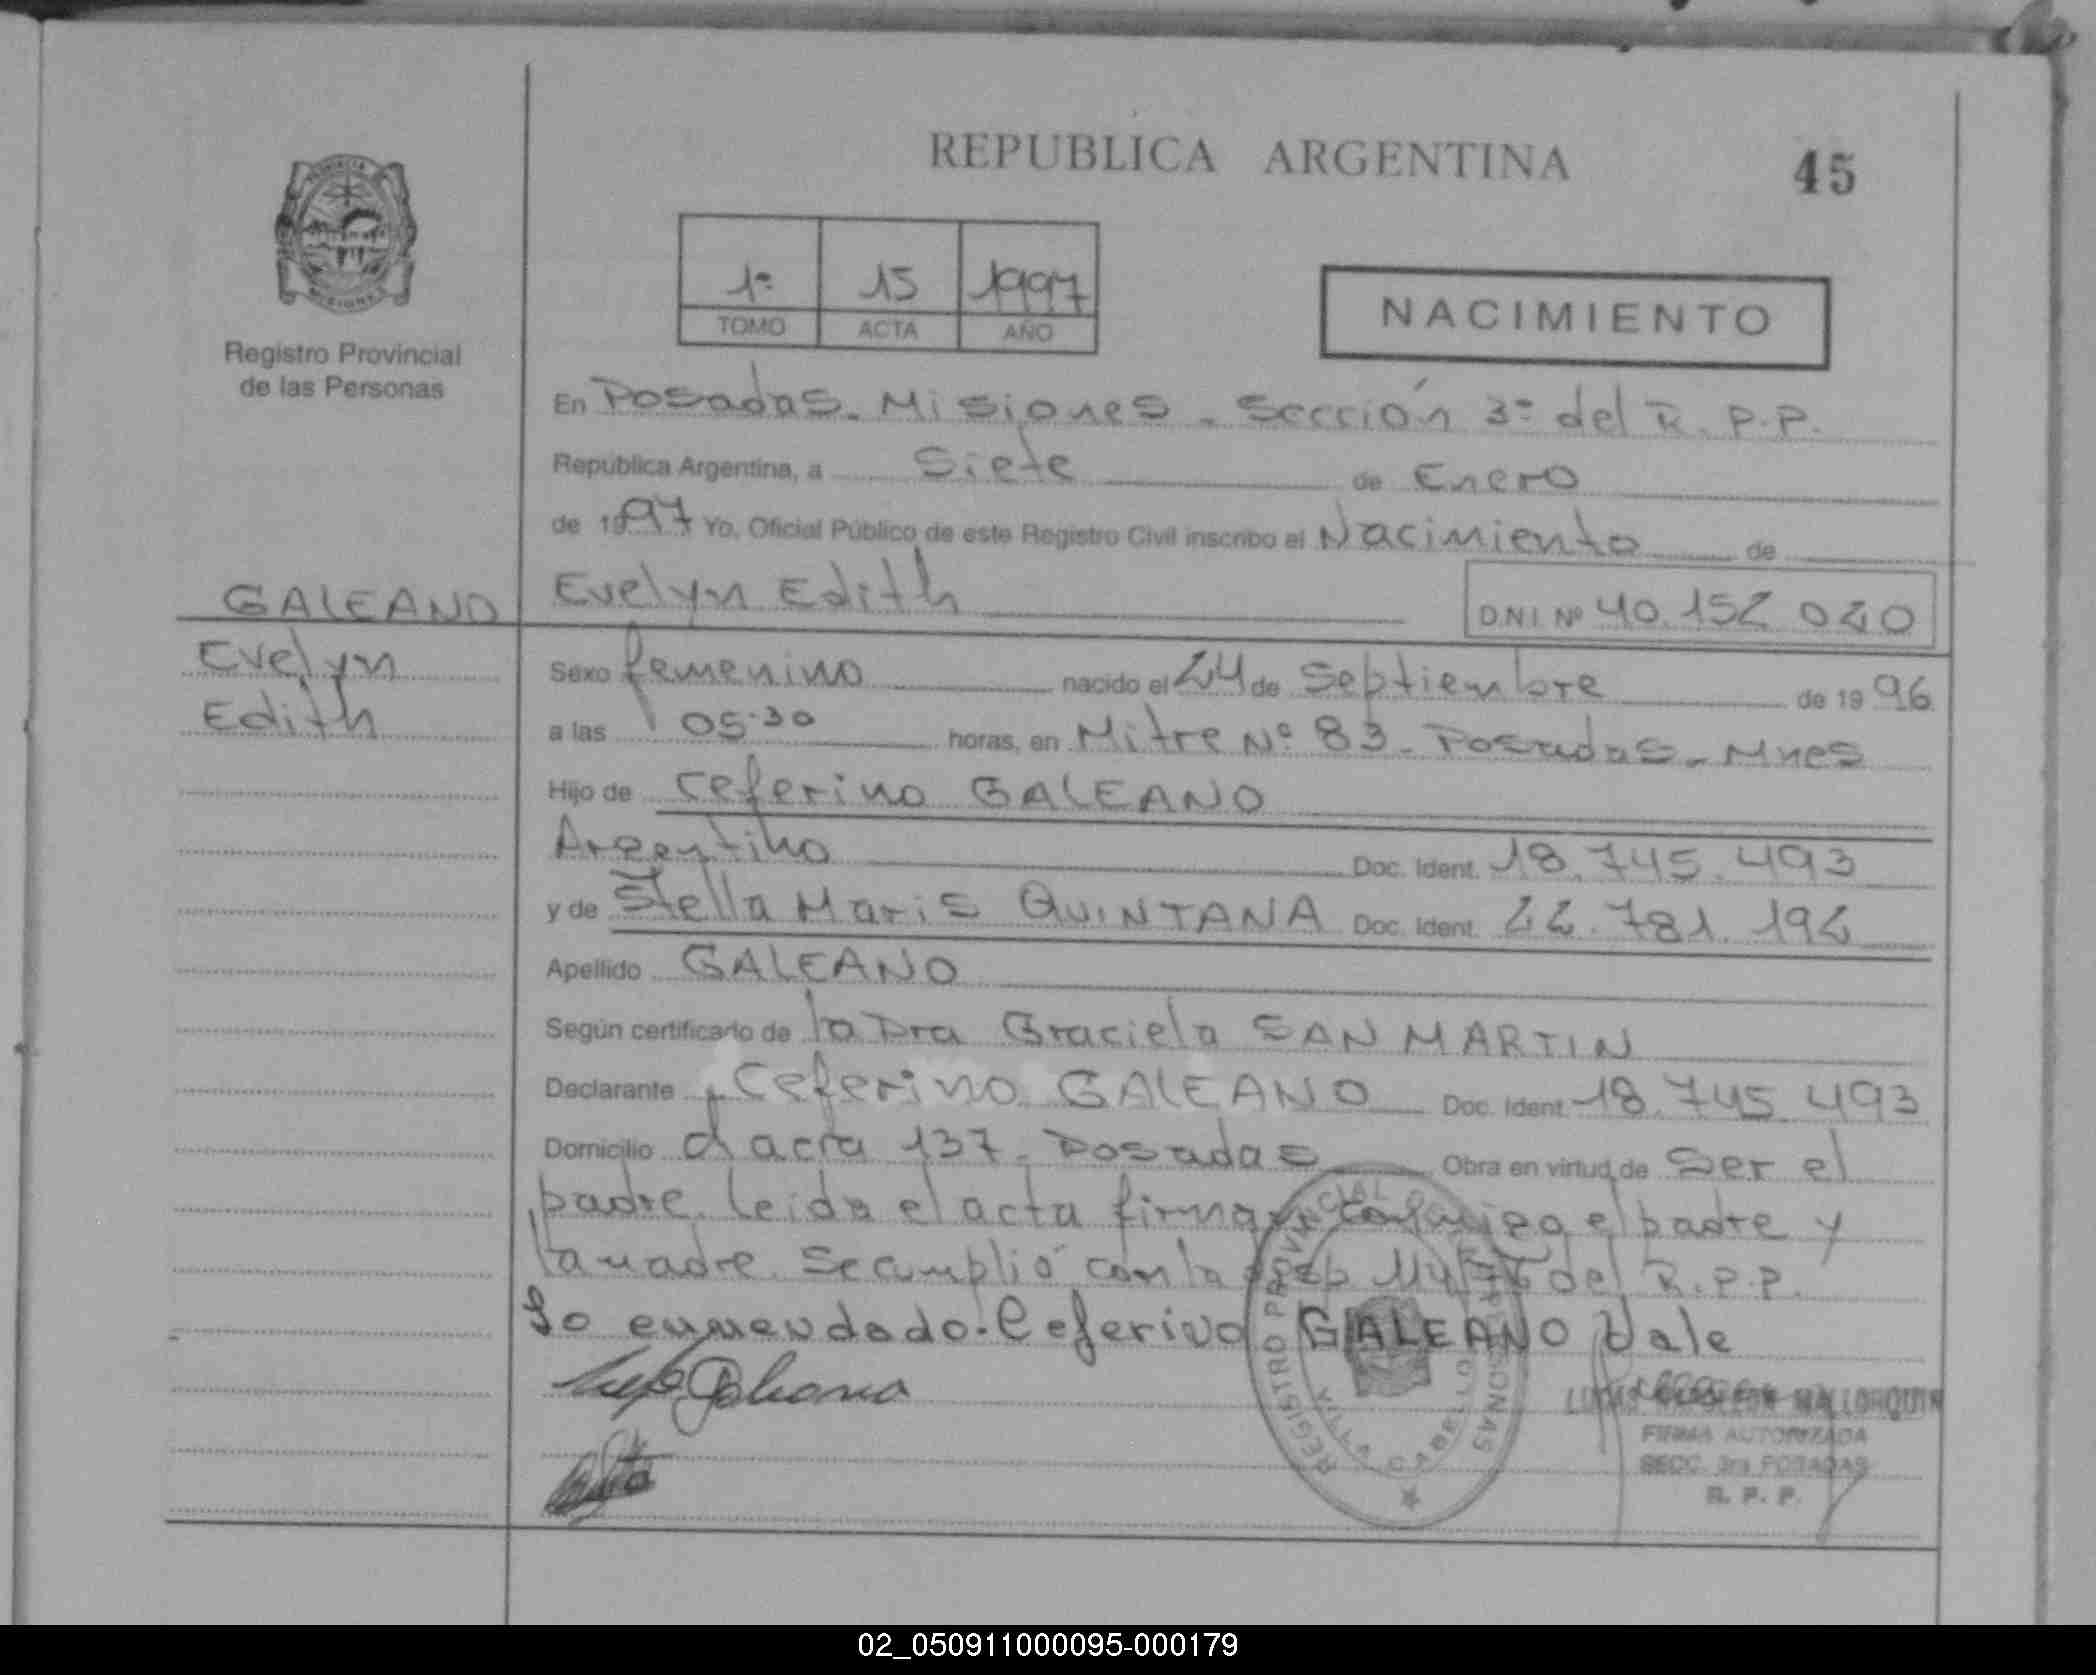 REPUBLICA ARGENTINA
45
Registro Provincial
de las Personas
1º 15 1997
TOMO ACTA AÑO
NACIMIENTO
En Posadas. Misiones - Sección 3º del R.P.P.
República Argentina, a Siete de Enero
de 1997 Yo, Oficial Público de este Registro Civil inscribo el Nacimiento de
GALEANO
Evelyn Edith
D.N.I. Nº 40.152 020
Evelyn
Edith
Sexo femenino nacido el 24 de Septiembre de 1996
a las 05.30 horas, en Mitre Nº 83 - Posadas - Mnes
Hijo de Ceferino GALEANO
Argentino Doc. Ident. 18.745.493
y de Stella Maris QUINTANA Doc. Ident. 22.781.192
Apellido GALEANO
Según certificado de la Dra Graciela SAN MARTIN
Declarante Ceferino GALEANO Doc. Ident. 18.745.493
Domicilio 137 - Posadas Obra en virtud de Ser el
padre. Leida el acta firma conmigo el padre y
la madre. Se cumplió con la del R.P.P.
Lo enmendado. Ceferino GALEANO Vale
REGISTRO PROVINCIAL PERSONAS
MALLORQUIN
FIRMA AUTORIZADA
SECC. 3ra POSADAS
R. P. P.
02_050911000095-000179